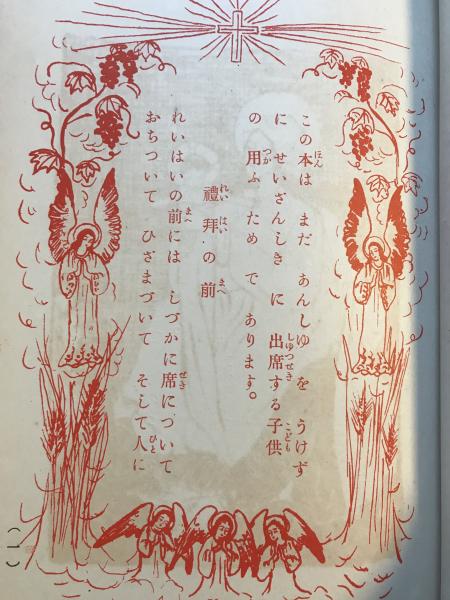 この本は まだ あんしゆ を うけず
に せいさんしき に 出席する子供
の 用ふ ため で あります。
禮拜の前
れいはいの前には しづかに席について
おちついて ひざまづいて そして人に
(一)